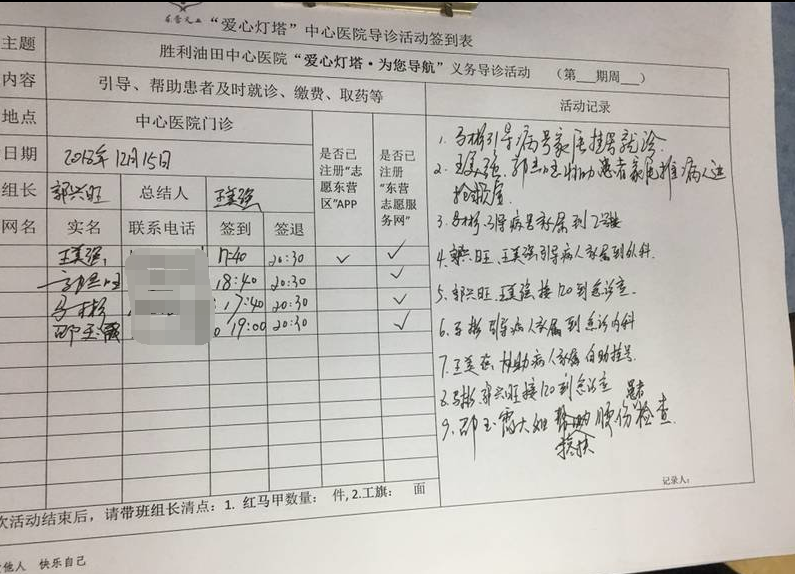 “爱心灯塔”中心医院导诊活动签到表
主题 胜利油田中心医院“爱心灯塔·为您导航”义务导诊活动 （第___期周___）
内容 引导、帮助患者及时就诊、缴费、取药等 活动记录
地点 中心医院门诊
日期 2018年12月15日
是否已注册“志愿东营区”APP
是否已注册“东营志愿服务网”
组长 郭兴旺 总结人 王美强
网名 实名 联系电话 签到 签退
王美强 17:40 20:30 ✓ ✓
18:40 20:30 ✓
马彬 17:40 20:30 ✓
邵玉霞 19:00 20:30 ✓
1. 马彬引导病号家属挂号就诊.
2. 王美强、郭兴旺协助患者家属推病人进抢救室
3. 马彬引导病号家属到2号楼
4. 郭兴旺、王美强引导病人家属到外科.
5. 郭兴旺、王美强接120到急诊室.
6. 马彬引导病人家属到急诊内科
7. 王美强协助病人家属自助挂号
8. 马彬、郭兴旺接120到急诊室
9. 邵玉霞大姐搀扶腰伤患者检查.
记录人：
次活动结束后，请带班组长清点：1. 红马甲数量： 件, 2.工旗： 面
他人 快乐自己